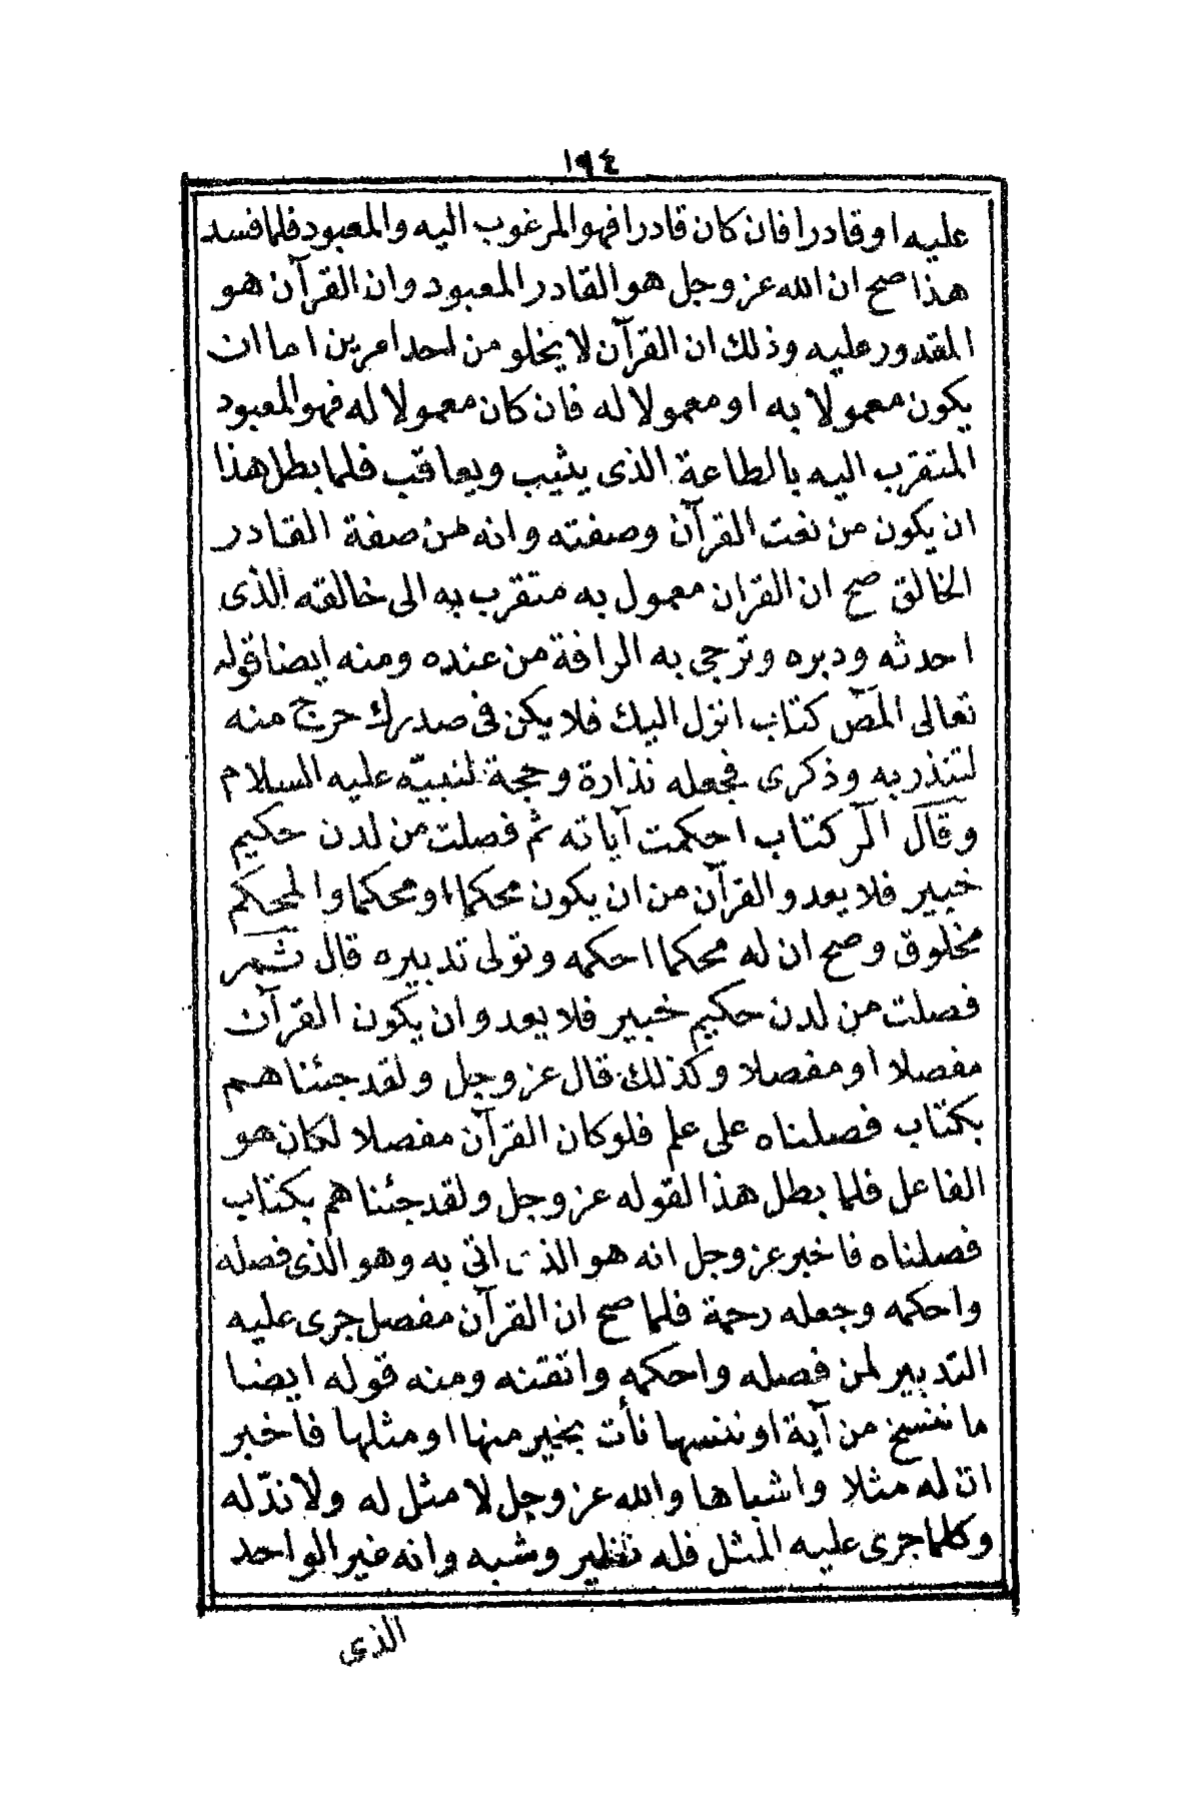 ١٩٤
عليه او قادرا فان كان قادرا فهو المرغوب اليه والمعبود فلما فسد
هذا صح ان الله عز وجل هو القادر المعبود وان القرآن هو
المقدور عليه وذلك ان القرآن لا يخلو من احد امرين اما ان
يكون معمولا به او معمولا له فان كان معمولا له فهو المعبود
المتقرب اليه بالطاعة الذى يثيب ويعاقب فلما بطل هذا
ان يكون من نعت القرآن وصفته وانه لمن صفة القادر
الخالق صح ان القران معمول به متقرب به الى خالقه الذى
احدثه ودبره وترجى به الرافة من عنده ومنه ايضا قوله
تعالى المص كتاب انزل اليك فلا يكن فى صدرك حرج منه
لتنذر به وذكرى فجعله نذارة وحجة لنبيّه عليه السلام
وقال الر كتاب احكمت آياته ثم فصلت من لدن حكيم
خبير فلا يعدو القرآن من ان يكون محكما او محكما والمحكم
مخلوق وصح ان له محكما احكمه وتولى تدبيره قال ثمر
فصلت من لدن حكيم خبير فلا يعدو ان يكون القرآن
مفصلا او مفصلا وكذلك قال عز وجل ولقد جئناهم
بكتاب فصلناه على علم فلو كان القرآن مفصلا لكان هو
الفاعل فلما بطل هذا لقوله عز وجل ولقد جئناهم بكتاب
فصلناه فاخبر عز وجل انه هو الذى اتى به وهو الذى فصله
واحكمه وجعله رحمة فلما صح ان القرآن مفصل جرى عليه
التدبير لمن فصله واحكمه واتقنه ومنه قوله ايضا
ما ننسخ من آية او ننسها نأت بخير منها او مثلها فاخبر
ان له مثلا واشباها والله عز وجل لا مثل له ولا ندّ له
وكلما جرى عليه المثل فله نظير وشبه وانه غير الواحد
الذى